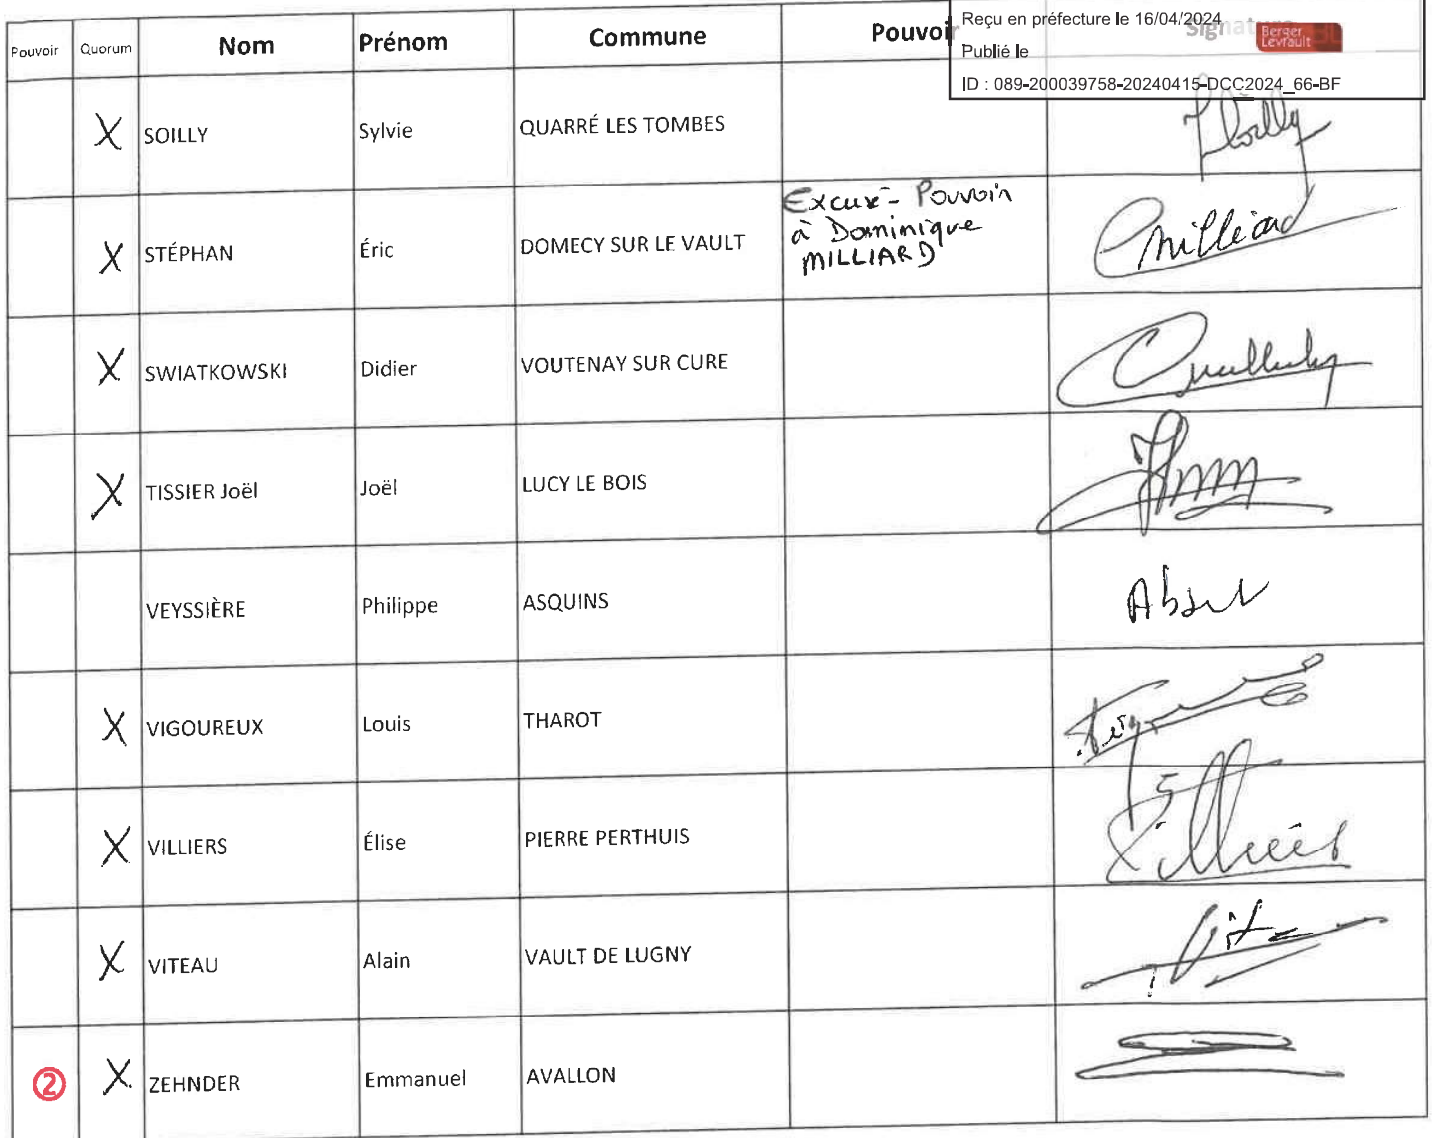 Reçu en préfecture le 16/04/2024
Publié le
ID : 089-200039758-20240415-DCC2024_66-BF
Berger Levrault
Pouvoir Quorum Nom Prénom Commune Pouvoir Signature
X SOILLY Sylvie QUARRÉ LES TOMBES Soilly
X STÉPHAN Éric DOMECY SUR LE VAULT Excusé - Pouvoir
à Dominique
MILLIARD Milliard
X SWIATKOWSKI Didier VOUTENAY SUR CURE
X TISSIER Joël Joël LUCY LE BOIS
VEYSSIÈRE Philippe ASQUINS Absent
X VIGOUREUX Louis THAROT
X VILLIERS Élise PIERRE PERTHUIS Villiers
X VITEAU Alain VAULT DE LUGNY
② X ZEHNDER Emmanuel AVALLON